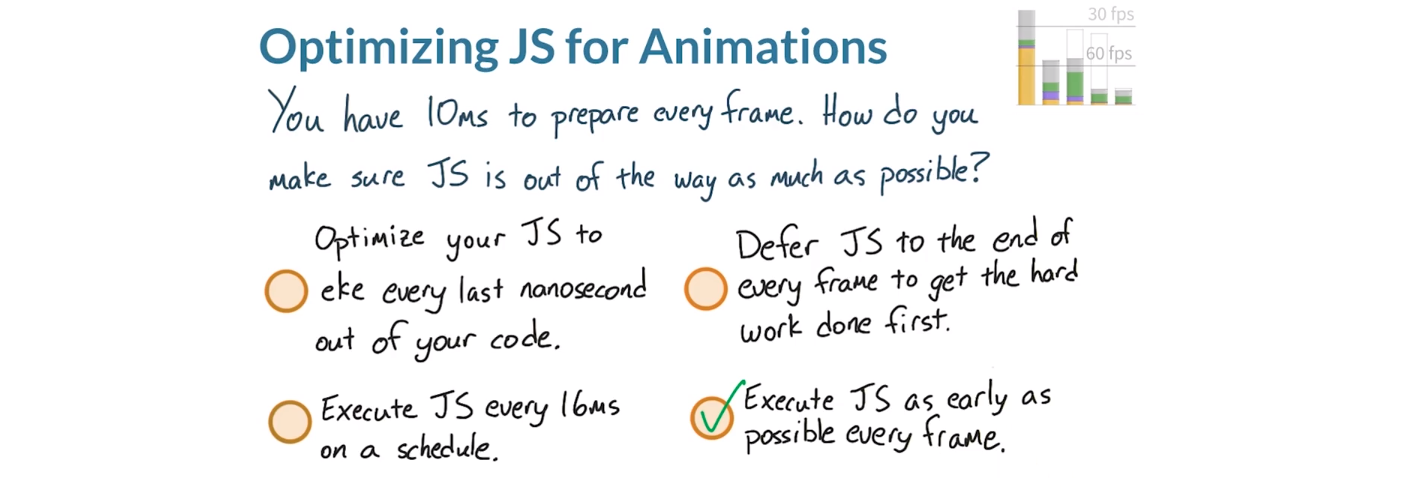 Optimizing JS for Animations
30 fps
60 fps
You have 10ms to prepare every frame. How do you
make sure JS is out of the way as much as possible?
Optimize your JS to
eke every last nanosecond
out of your code.
Defer JS to the end of
every frame to get the hard
work done first.
Execute JS every 16ms
on a schedule.
Execute JS as early as
possible every frame.